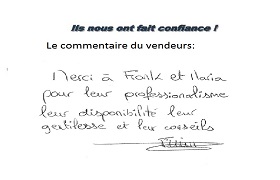 Ils nous ont fait confiance !
Le commentaire du vendeurs:
Merci à Frank et Maria
pour leur professionalisme
leur disponibilité leur
gentilesse et leur conseils